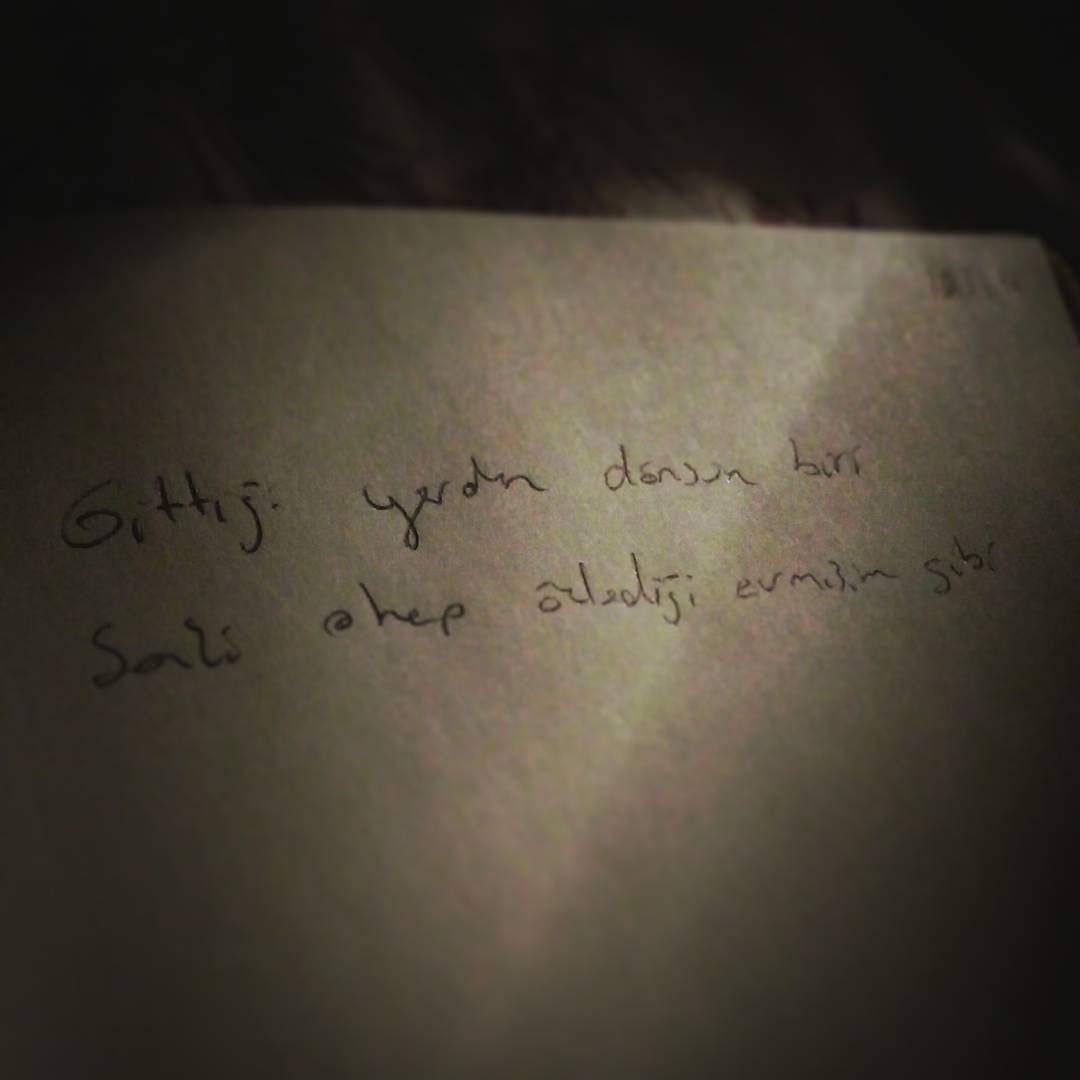 Gittiği yerden dönsün biri
Sanki o hep özlediği evmişim gibi